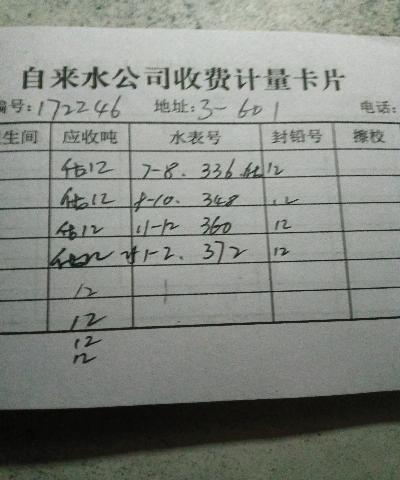 自来水公司收费计量卡片
编号:172246 地址:3-601 电话:
生间 应收吨 水表号 封铅号 擦校
估12 7-8. 336 估12
估12 9-10. 348 12
估12 11-12 360 12
估12 1-2. 372 12
12
12
12
12